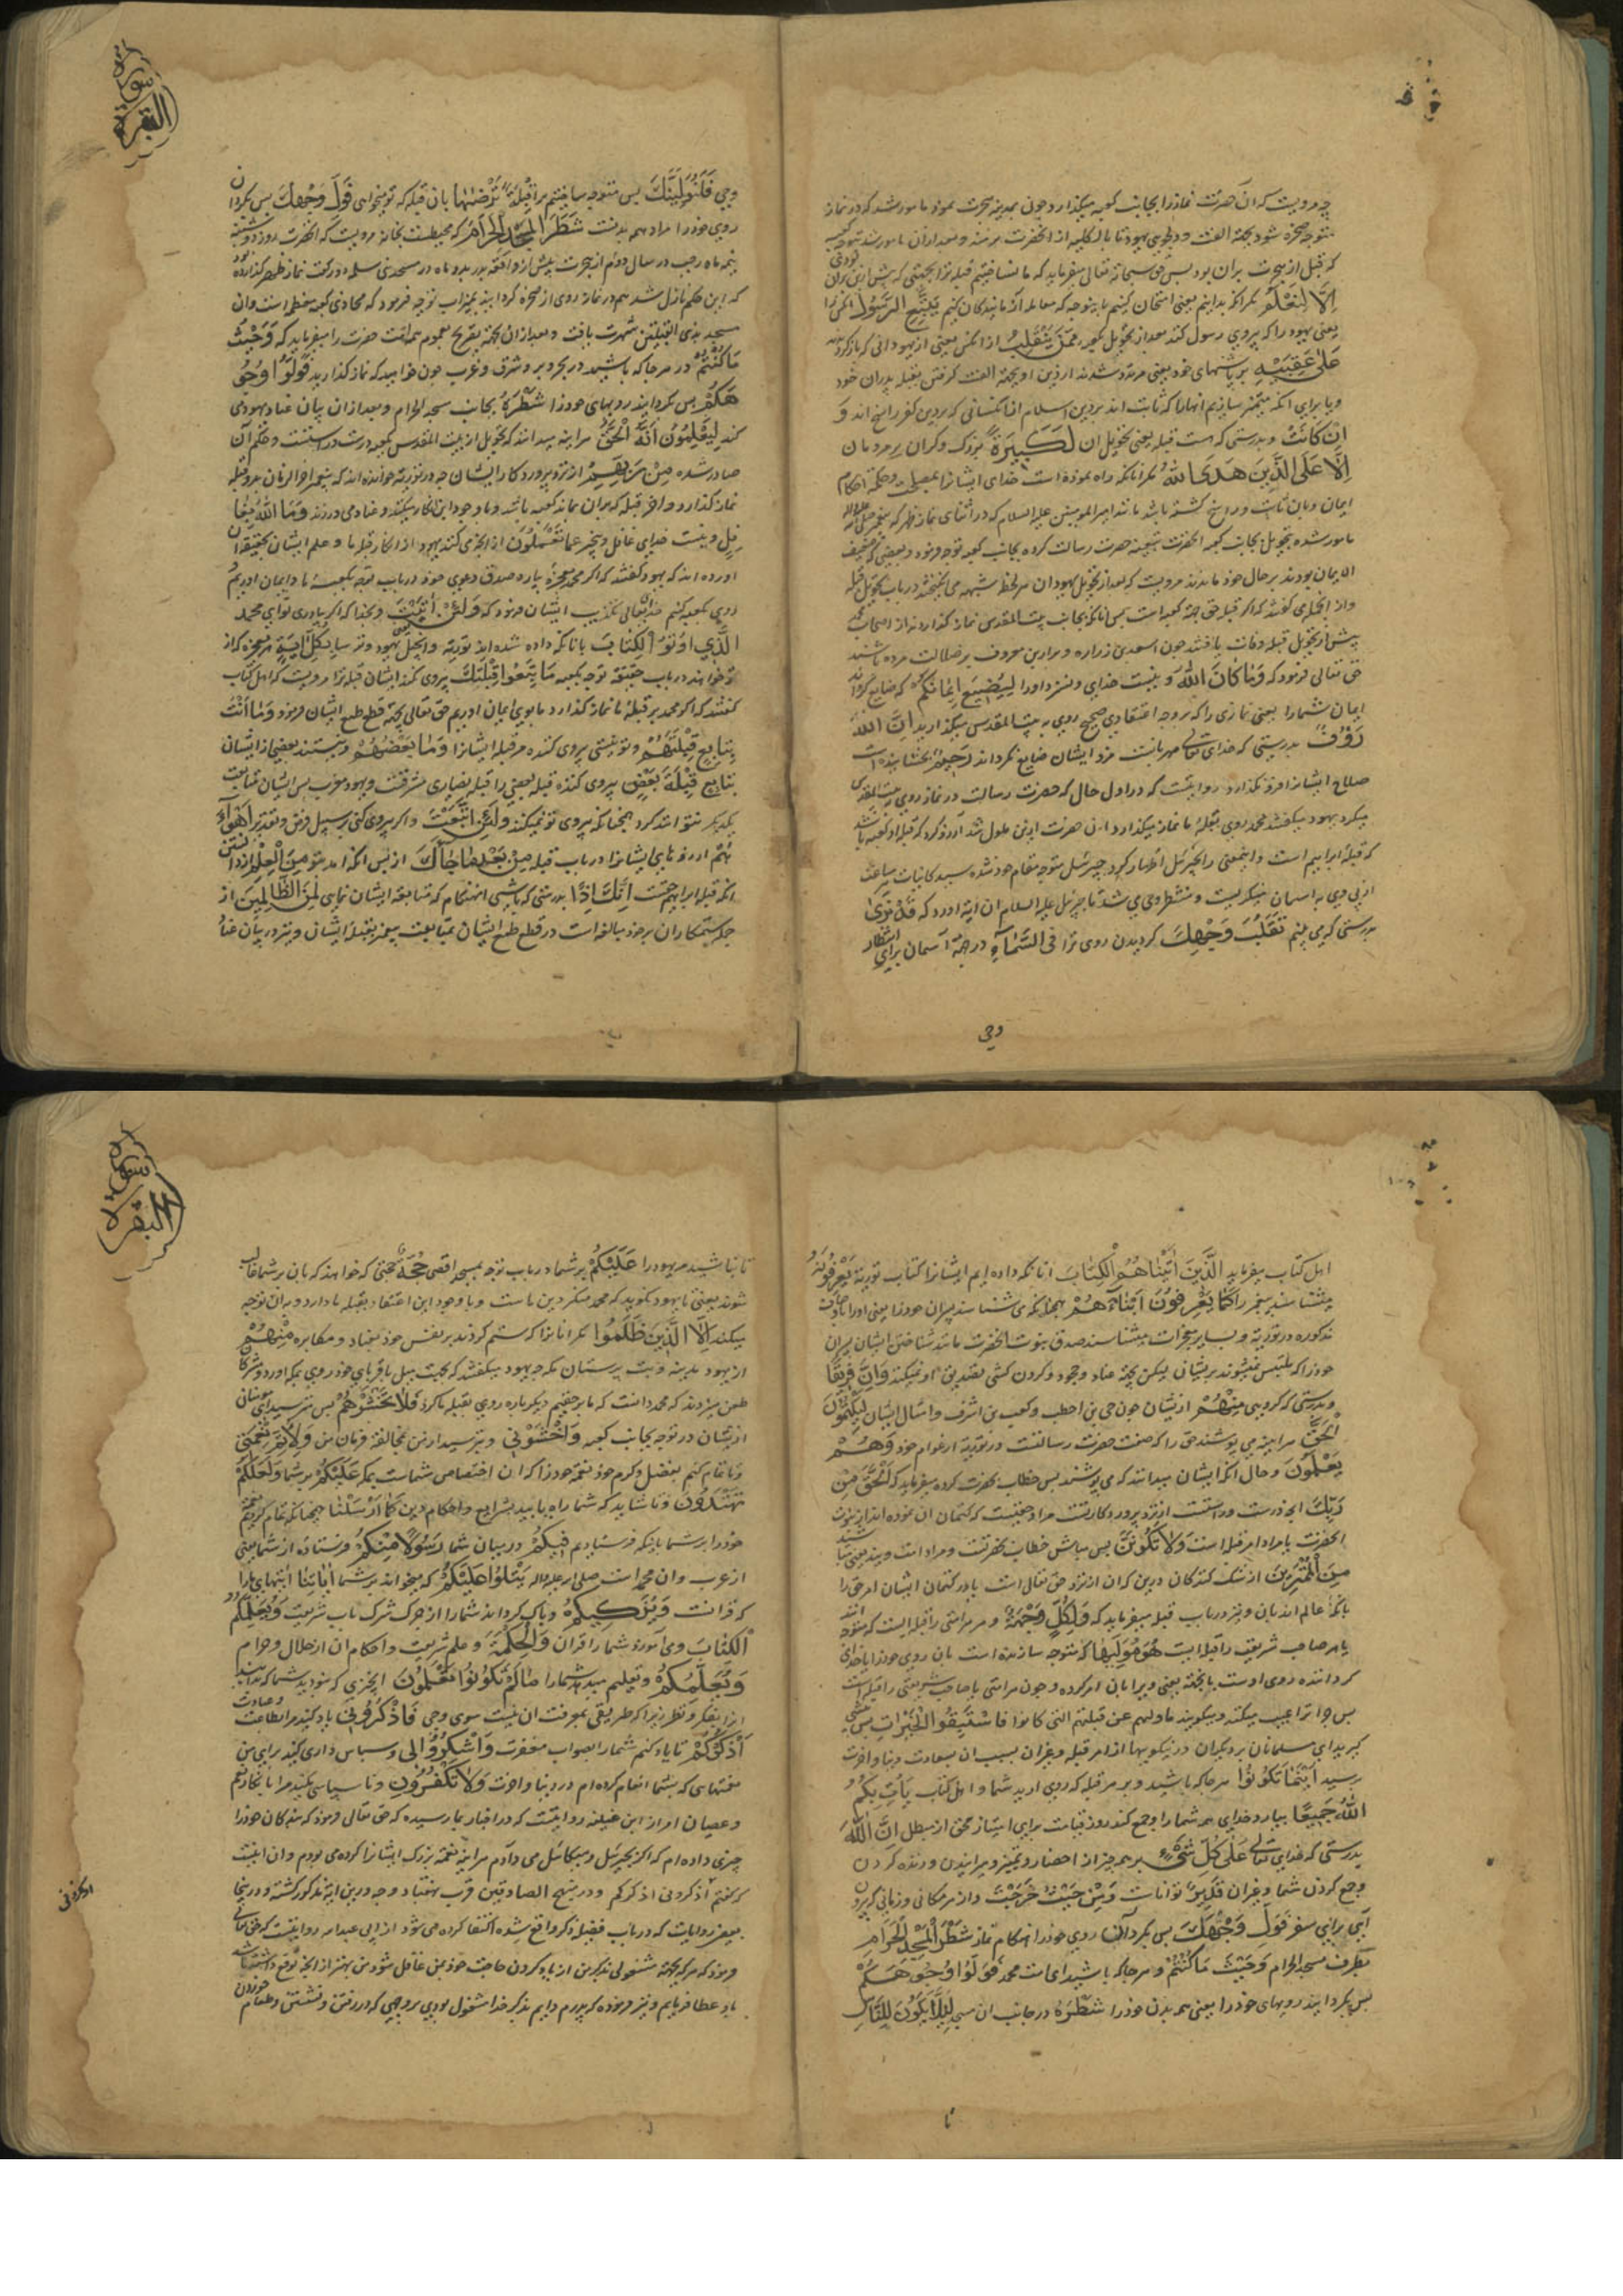 چه مرویست که آن حضرت نماز را بجانب کعبه میگذارد و چون بمدینه هجرت نمود مامور شد که در نماز
متوجه صخره شود بجهة الفت و دلجویی یهود تا بالکلیه از انحضرت نرمند و بعد از آن مامور شد بتوجه کعبه
که قبل از هجرت بران بود پس حق سبحانه و تعالی میفرماید که ما نساختیم قبله ترا بجهتی که پیش ازین بران بودی
اِلّا لِنَعْلَمَ مگر انکه بدانیم یعنی امتحان کنیم
یعنی یهود را که پیروی رسول کند بعد از تحویل کعبه مِمَّنْ یَنْقَلِبُ از انکس یعنی از یهودانی که بازگردد
عَلیٰ عَقِبَیْهِ بر پاشنهای خود یعنی مرتد شدند از دین او بجهة الفت گرفتن بقبله پدران خود
و یا برای انکه متمیز سازیم انهارا که ثابت اند بر دین اسلام از انکسانی که بر دین کفر راسخ اند وَ
اِنْ کانَتْ و بدرستی که هست قبله یعنی تحویل ان لَکَبِیرَةً بزرک و کران بر مردمان
اِلّا عَلَی الَّذِینَ هَدَی اللهُ مکر انانکه راه نموده است خدای ایشانرا
ایمان و بان ثابت و راسخ کشته باشد مانند امیر المومنین علیه السلام که در اثنای نماز ظهر که پیغمبر صلی الله علیه و اله
مامور شده بتحویل بجانب کعبه انحضرت بتبعیة حضرت رسالت کرده بجانب کعبه توجه فرمود و بعضی که ضعیف
الایمان بودند بر حال خود ماندند مرویست که بعد از تحویل یهودان
و از انجمله می کفتند که اگر قبله حق جهة کعبه است پس انانکه بجانب بیت المقدس نماز گذاردند از اصحاب محمد
پیش از تحویل قبله وفات یافتند چون اسعد بن زراره و براء بن معرور بر ضلالت مرده باشند
حق تعالی فرمود که وَما کانَ اللهُ و نیست خدای و نسزد او را لِیُضِیعَ اِیمانَکُمْ که ضایع کرداند
ایمان شمارا یعنی نمازی را که بر وجه اعتقادی صحیح روی به بیت المقدس میگذارید اِنَّ اللهَ
رَؤُفٌ بدرستی که خدای تعالی مهربانست مزد ایشان ضایع نکرداند رَحِیمٌ بخشاینده است
صلاح ایشانرا فرو نکذارد روایتست که در اول حال که حضرت رسالت در نماز روی به بیت المقدس
میکرد یهود میکفتند محمد روی بقبله ما نماز میکذارد ازین حضرت ازین ملول شد آرزو کرد که قبله او کعبه باشد
که قبله ابراهیم است و اینمعنی را بجبرئیل اظهار کرد جبرئیل متوجه مقام خود شده سید کاینات
از پی وی به اسمان مینکریست و منتظر وحی می شد تا جبرئیل علیه السلام ان ایة اورد که قَدْ نَریٰ
بدرستی که می بینم تَقَلُّبَ وَجْهِکَ گردیدن روی ترا فِی السَّمآءِ در جهة آسمان برای انتظار
وحی
سورة البقره
وحی فَلَنُوَلِّیَنَّکَ پس متوجه ساختیم ترا قِبْلَةً تَرْضٰیها بان قبله که تو میخواهی فَوَلِّ وَجْهَکَ پس بکردان
روی خود را مراد همه بدنست شَطْرَ الْمَسْجِدِ الْحَرامِ که محیطست بخانه مرویست که انحضرت روز دوشنبه
نیمه ماه رجب در سال دوم از هجرت پیش از واقعه بدر بدو ماه در مسجد بنی سلمه دو رکعت نماز ظهر کذارده بود
که این حکم نازل شد هم در نماز روی از صخره کردانیده بمیزاب توجه فرمود که محاذی کعبه معظم است و ان
مسجد بذی القبلتین شهرت یافت و بعد از ان بجهة تصریح بعموم همه امت حضرت را میفرماید که وَحَیْثُ
ما کُنْتُمْ در هرجا که باشید در بحر و بر و شرق و غرب چون خواهید که نماز کذارید فَوَلُّوا وُجُو
هَکُمْ پس بکردانید رویهای خود را شَطْرَهُ بجانب مسجد الحرام و بعد از ان بیان عناد یهود می
کند لَیَعْلَمُونَ اَنَّهُ الْحَقُّ هراینه میدانند که تحویل از بیت المقدس بکعبه درست و راستست و حکم آن
صادر شده مِنْ رَبِّهِمْ از نزد پروردکار ایشان چه در توریة خوانده اند که پیغمبر اخر الزمان بدو قبله
نماز کذارد و اخر قبله که بران بماند کعبه باشد و با وجود این انکار میکنند و عناد می ورزند وَمَا اللهُ بِغا
فِلٍ و نیست خدای غافل و بیخبر عَمّا تَعْمَلُونَ از انچه می کنند یهود از انکار قبله ما و علم ایشان بحقیقة ان
اورده اند که یهود کفتند که اکر محمد معجزه بیارد بصدق دعوی خود در باب توجه بکعبه ما باو ایمان اوریم و
روی بکعبه کنیم خدای تعالی بتکذیب ایشان فرمود که وَلَئِنْ اَتَیْتَ و بخدا که اکر بیاوری تو ای محمد
الَّذِینَ اُوتُوا الْکِتابَ بانانکه داده شده اند توریة و انجیل یعنی یهود و ترسا بِکُلِّ اٰیَةٍ هر معجزه که از
تو خواهند در باب حقیقة توجه بکعبه ما تَبِعُوا قِبْلَتَکَ پیروی نکنند ایشان قبله ترا مرویست که اهل کتاب
کفتند که اکر محمد بر قبله ما نماز کذارد ما بوی ایمان اوریم حق تعالی بجهة قطع طمع ایشان فرمود وَما اَنْتَ
بِتابِعٍ قِبْلَتَهُمْ و تو نیستی پیروی کننده مر قبله ایشانرا وَما بَعْضُهُمْ و نیستند بعضی از ایشان
بِتابِعٍ قِبْلَةَ بَعْضٍ پیروی کننده قبله بعضی را قبله نصاری مشرقست و یهود مغرب پس ایشان متابعت
یکدیکر نتوانند کرد همچنانکه پیروی تو نمیکنند وَلَئِنِ اتَّبَعْتَ و اکر پیروی کنی بر سبیل فرض و تقدیر اَهْوآءَ
هُمْ ارزوهای ایشانرا در باب قبله مِنْ بَعْدِ ما جآءَکَ از پس انکه امد بتو مِنَ الْعِلْمِ از دانستن
انکه قبله ابراهیم حقست اِنَّکَ اِذًا بدرستی که باشی انهنکام که متابعة ایشان نمایی لَمِنَ الظّالِمِینَ از
جمله ستمکاران بر خود مبالغه است در قطع طمع ایشان بمتابعت پیغمبر بقبله ایشان و نیز در بیان عناد
اهل کتاب میفرماید الَّذِینَ اٰتَیْناهُمُ الْکِتابَ انانکه داده ایم ایشانرا کتاب توریة یَعْرِفُونَهُ
میشناسند پیغمبر را کَما یَعْرِفُونَ اَبْنآءَهُمْ همچنانکه می شناسند پسران خود را یعنی او را باوصاف
مذکوره در توریة و بسایر معجزات میشناسند صدق نبوت انحضرت مانند شناختن ایشان پسران
خود را که ملتبس نمیشوند بر ایشان لیکن بجهة عناد و جحود و کردن کشی تصدیق او نمیکنند وَاِنَّ فَرِیقًا
و بدرستی که کروهی مِنْهُمْ از ایشان چون حی بن اخطب و کعب بن اشرف و امثال ایشان لَیَکْتُمُونَ
الْحَقَّ هراینه می پوشند حق را که صفت حضرت رسالتست در توریة از عوام خود وَهُمْ
یَعْلَمُونَ و حال انکه ایشان میدانند که می پوشند پس خطاب بحضرت کرده میفرماید که اَلْحَقُّ مِنْ
رَبِّکَ انچه درست و راستست از نزد پروردکارتست مراد حقیتست که کتمان ان نموده اند از نبوت
انحضرت یا مراد امر قبله است وَلا تَکُونَنَّ پس مباش خطاب بحضرتست و مراد امت ویند یعنی مباشید
مِنَ الْمُمْتَرِینَ از شک کنندکان درین که ان از نزد حق تعالی است یا در کتمان ایشان امر حق را
بانکه عالم اند بان و نیز در باب قبله میفرماید که وَلِکُلٍّ وِجْهَةٌ و مر هر امتی را قبله ایست
یا هر صاحب شریعت را قبله ایست هُوَ مُوَلِّیها که متوجه سازنده است بان روی خود را یا خدای
کرداننده روی اوست بانجهة یعنی ویرا بان امر کرده و چون هر امتی یا صاحب شریعتی را قبله است
پس چرا ترا عیب میکنند و میکویند ما ولیهم عن قبلتهم التی کانوا فَاسْتَبِقُوا الْخَیْراتِ پس پیشی
گیرید ای مسلمانان بر دیکران در نیکوییها از امر قبله و غیر ان بسبب ان بسعادت دنیا و اخرت
رسید اَیْنَما تَکُونُوا هرجا که باشید و بر هر قبله که روی اورید شما و اهل کتاب یَأْتِ بِکُمُ
اللهُ جَمِیعًا بیارد خدای همه شمارا و جمع کند روز قیامت برای امتیاز محق از مبطل اِنَّ اللهَ
بدرستی که خدای تعالی عَلیٰ کُلِّ شَیْءٍ بر همه چیز از احضار و تمیز و میرانیدن و زنده کردن
و جمع کردن شما و غیر ان قَدِیرٌ تواناست وَمِنْ حَیْثُ خَرَجْتَ و از هر مکانی و زمانی که بیرون
آیی برای سفر فَوَلِّ وَجْهَکَ پس بکردان روی خود را هنکام نماز شَطْرَ الْمَسْجِدِ الْحَرامِ
بطرف مسجد الحرام وَحَیْثُ ما کُنْتُمْ و هرجا که باشید ای امت محمد فَوَلُّوا وُجُوهَکُمْ
پس بکردانید رویهای خود را یعنی همه بدن خود را شَطْرَهُ در جانب ان مسجد لِئَلّا یَکُونَ لِلنّاسِ
تا
سورة البقره
تا نباشد مر یهود را عَلَیْکُمْ بر شما در باب توجه بمسجد اقصی حُجَّةٌ حجتی که خواهند که بان بر شما غالب
شوند یعنی تا یهود نکوید که محمد منکر دین ماست و با وجود این اعتقاد بقبله ما دارد و بدان توجه
میکند اِلَّا الَّذِینَ ظَلَمُوا مکر انانرا که ستم کردند بر نفس خود بعناد و مکابره مِنْهُمْ
از یهود مدینه و بت پرستان مکه چه یهود میکفتند که بجهت میل باقربای خود روی بمکه اورد و مشرکان
طعن میزدند که محمد دانست که ما بر حقیم دیکر باره روی بقبله ما کرد فَلا تَخْشَوْهُمْ پس مترسید از ایشان
از ایشان در توجه بجانب کعبه وَاخْشَوْنِی و بترسید از من بمخالفة فرمان من وَلِاُتِمَّ نِعْمَتِی
و تا تمام کنم بفضل و کرم خود نعمت خود را که ان اختصاص شماست بمکه عَلَیْکُمْ بر شما وَلَعَلَّکُمْ
تَهْتَدُونَ و تا شاید که شما راه یابید بشرایع و احکام دین کَما اَرْسَلْنا همچنانکه تمام کردیم نعمت
خود را بر شما باینکه فرستادیم فِیکُمْ در میان شما رَسُولًا مِنْکُمْ فرستاده از شما یعنی
از عرب و ان محمد است صلی الله علیه و اله یَتْلُوا عَلَیْکُمْ که میخواند بر شما اٰیاتِنا ایتهای ما را
که قرانست وَیُزَکِّیکُمْ و پاک کرداند شمارا از چرک شرک باب شریعت وَیُعَلِّمُکُمُ
الْکِتابَ و می آموزد شما را قران وَالْحِکْمَةَ و علم شریعت و احکام ان از حلال و حرام
وَیُعَلِّمُکُمْ و تعلیم میدهد شما را ما لَمْ تَکُونُوا تَعْلَمُونَ انچیزی که نبودید شما که بدانید
انرا بفکر و نظر زیرا که طریقی بمعرفت ان نیست سوی وحی فَاذْکُرُونِی یاد کنید مرا بطاعت و عبادت
اَذْکُرْکُمْ تا یاد کنم شما را بصواب مغفرت وَاشْکُرُوا لِی و سپاس داری کنید برای من
نعمتهایی که بشما انعام کرده ام در دنیا و اخرت وَلا تَکْفُرُونِ و ناسپاسی مکنید مرا بانکار نعم
و عصیان امر
چیزی داده ام که اکر بجبرئیل و میکائیل می دادم هراینه نعمة بزرک ایشانرا کرده می بودم و ان اینست
که کفتم اذکرونی اذکرکم و در منهج الصادقین قرب بهفتاد وجه درین ایة مذکور کشته و درینجا
ببعض روایات که در باب فضیلة ذکر واقع شده اکتفا کرده می شود از ابی عبدالله روایتست که حق تعالی
فرمود که هرکه بجهة مشغولی بذکر من از یاد کردن حاجت خود بمن غافل شود من بهتر از انچه توقع داشته باشد
باو عطا فرمایم و نیز فرموده که پدرم دایم بذکر خدا مشغول بودی بر وجهی که در رفتن و نشستن و طعام خوردن
اذکرونی